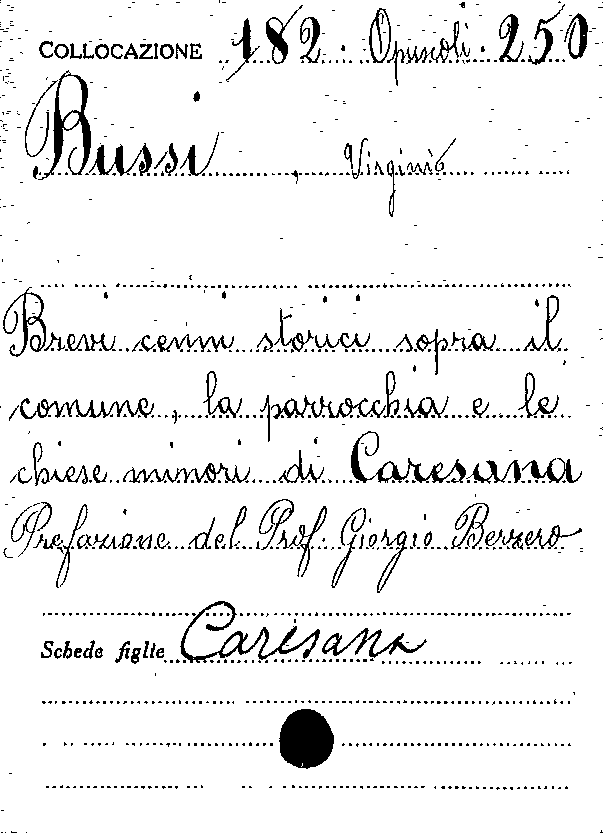 COLLOCAZIONE 182. Opuscoli. 250
Bussi, Virginio
Brevi cenni storici sopra il
comune, la parrocchia e le
chiese minori di Caresana
Prefazione del Prof. Giorgio Berzero
Schede figlie Caresana